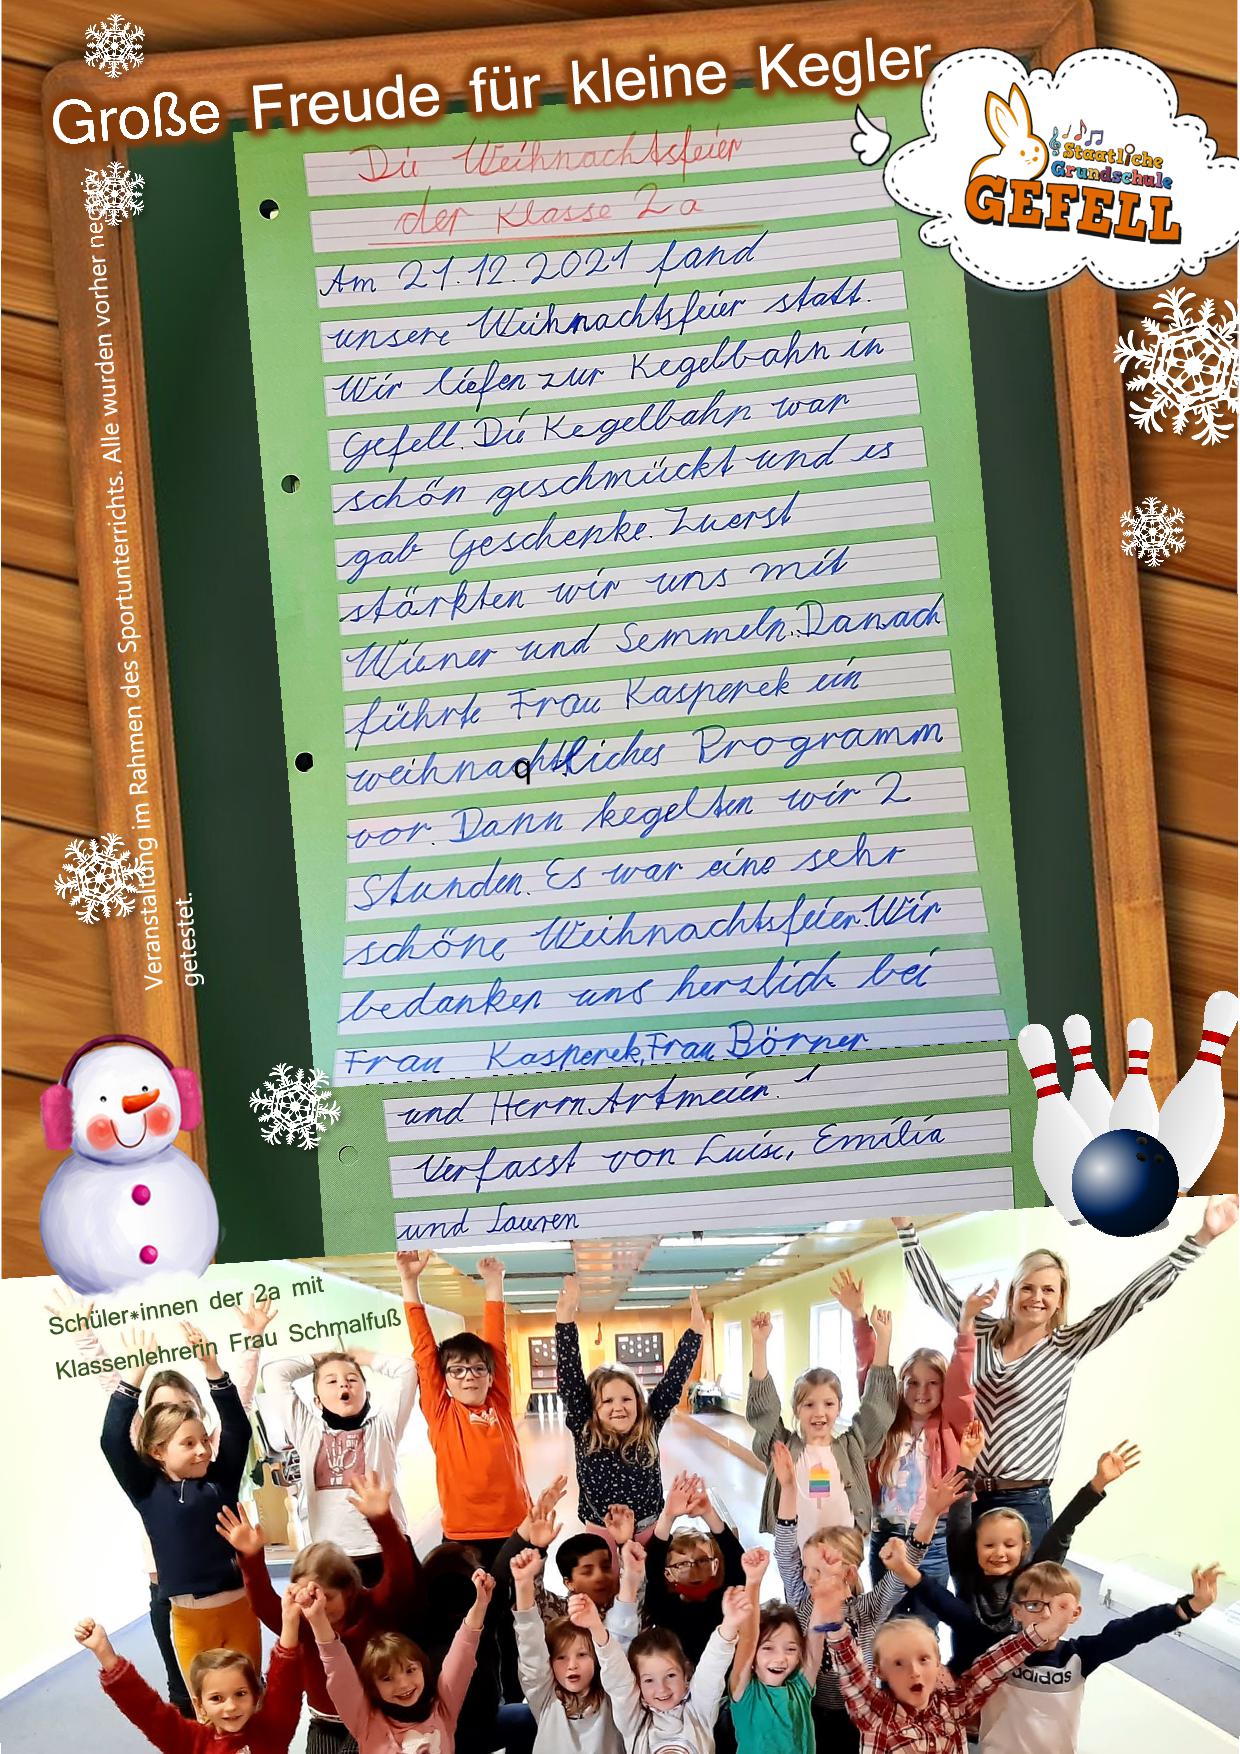 Große Freude für kleine Kegler
Staatliche
Grundschule
GEFELL
Die Weihnachtsfeier
der Klasse 2a
Am 21.12.2021 fand
unsere Weihnachtsfeier statt.
Wir liefen zur Kegelbahn in
Gefell. Die Kegelbahn war
schön geschmückt und es
gab Geschenke. Zuerst
stärkten wir uns mit
Wiener und Semmeln. Danach
führte Frau Kasperek ein
weihnachtliches Programm
q
vor. Dann kegelten wir 2
Stunden. Es war eine sehr
schöne Weihnachtsfeier. Wir
bedanken uns herzlich bei
Frau Kasperek, Frau Börner
und Herrn Artmeier.
Verfasst von Luise, Emilia
und Lauren
Veranstaltung im Rahmen des Sportunterrichts. Alle wurden vorher negativ
getestet.
Schüler*innen der 2a mit
Klassenlehrerin Frau Schmalfuß
adidas